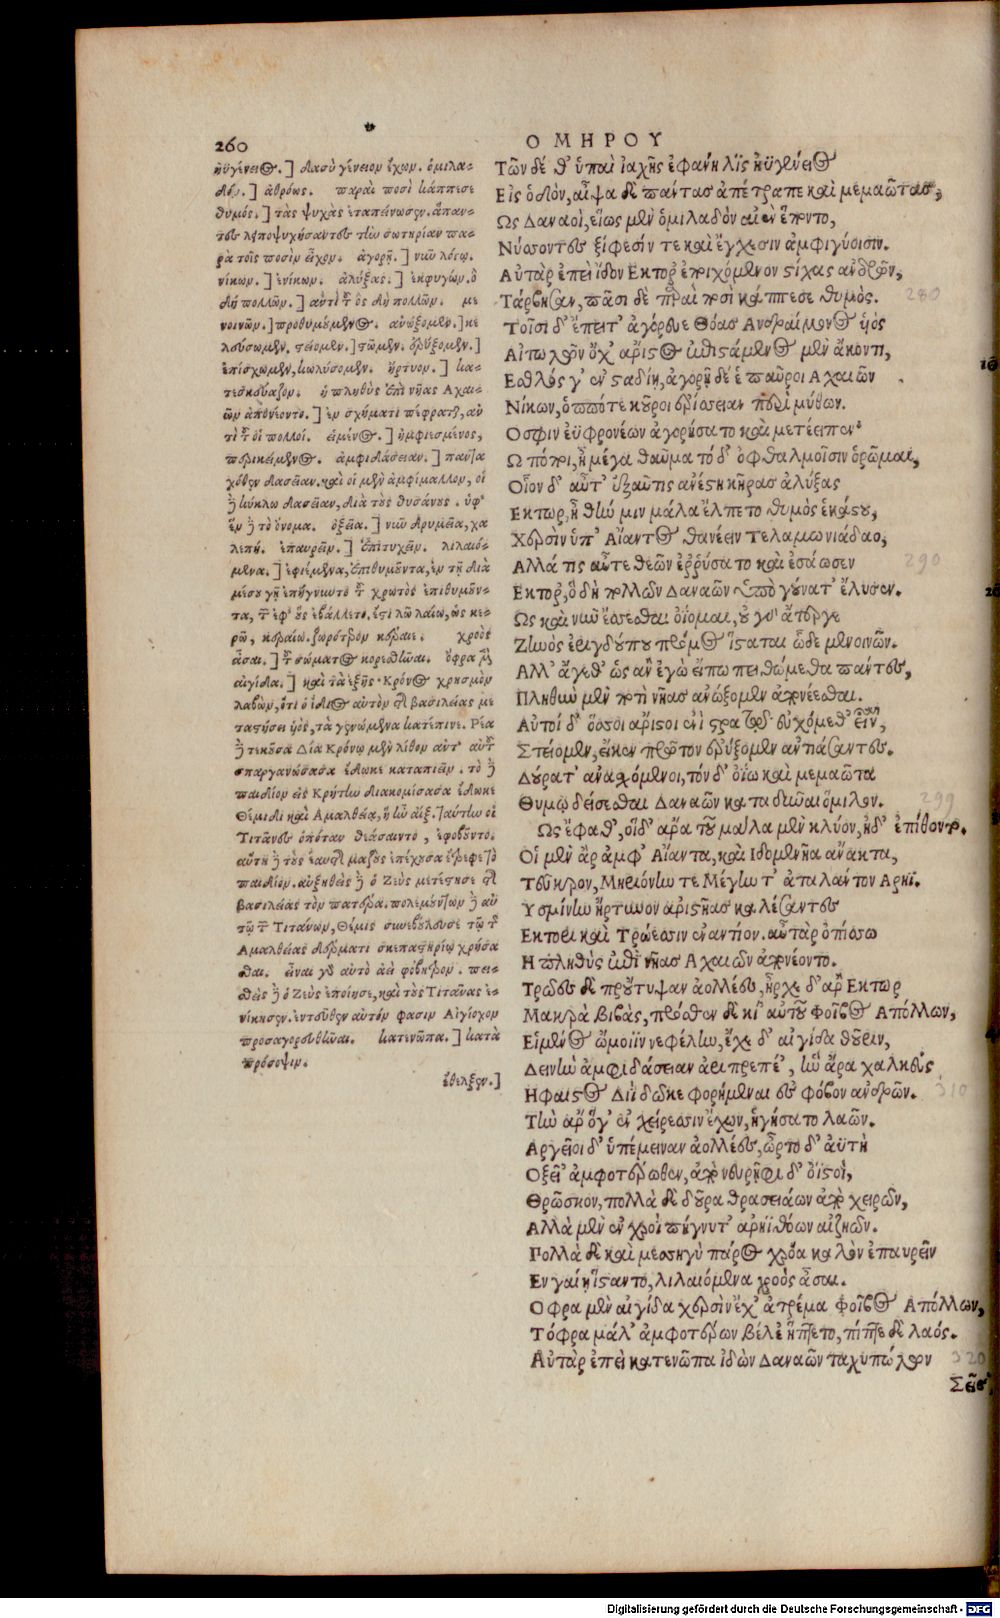 260
ΟΜΗΡΟΥ
ἠϋγένειος.] δασὺ γένειον ἔχων. ὁμιλα-
δόν.] ἀθρόως. παραὶ ποσὶ κάππεσε
θυμός.] τὰς ψυχὰς ἐταπείνωσεν. ἅπαν-
τες λιποψυχήσαντες τὴν σωτηρίαν πα-
ρὰ τοῖς ποσὶν εἶχον. ἀγορῇ.] νῦν λόγῳ.
νίκων.] ἐνίκων. ἀλύξας.] ἐκφυγών. ὁ
δὴ πολλῶν.] ἀντὶ τοῦ ὃς δὴ πολλῶν. με
νοινῶν.] προθυμούμενος. ἀνώξομεν.] κε
λεύσωμεν. στείομεν.] στῶμεν. ἐρύξομεν.]
ἐπίσχωμεν, κωλύσομεν. ἤρτυον.] κα-
τεσκεύαζον. ἡ πληθὺς ἐπὶ νῆας Ἀχαι-
ῶν ἀπονέοντο.] ἐν σχήματι πέφρασται, ἀν
τὶ τοῦ οἱ πολλοί. εἱμένος.] ἠμφιεσμένος,
περικείμενος. ἀμφιδάσειαν.] πανταχόθεν δασεῖαν. καὶ οἱ μὲν ἀμφίμαλλον, οἱ
δὲ κύκλῳ δασεῖαν, διὰ τοὺς θυσάνους. ὑφ'
ἓν δὲ τὸ ὄνομα. ὀξεῖα.] νῦν δριμεῖα, χα
λεπή. ἐπαυρεῖν.] ἐπιτυχεῖν. λιλαιό-
μενα.] ἐφιέμενα, ἐπιθυμοῦντα, ἐν τῇ διὰ
μέσου γῇ ἐπήγνυντο τοῦ χρωτὸς ἐπιθυμοῦν-
ἆσαι.] τοῦ σώματος κορεσθῆναι. ὄφρα μὲν
αἰγίδα.] καὶ τὰ ἑξῆς. Κρόνος χρησμὸν
λαβὼν, ὅτι ὁ ἴδιος αὐτὸν τῆς βασιλείας με
ταστήσει υἱὸς, τὰ γεννώμενα κατέπινε. Ρέα
δὲ τεκοῦσα Δία Κρόνῳ μὲν λίθον ἀντ' αὐτοῦ
σπαργανώσασα ἔδωκε καταπιεῖν. τὸ δὲ
παιδίον εἰς Κρήτην διακομίσασα ἔδωκε
Θέμιδι καὶ Ἀμαλθείᾳ, ἣ ἦν αἴξ. ταύτην οἱ
Τιτᾶνες ὁπόταν θεάσαιντο, ἐφοβοῦντο.
αὕτη δὲ τοὺς ἑαυτῆς μαζοὺς ἐπέχουσα ἔτρεφε τὸ
παιδίον. αὐξηθεὶς δὲ ὁ Ζεὺς μετέστησε τῆς
βασιλείας τὸν πατέρα. πολεμούντων δὲ αὐ
τῷ τῶν Τιτάνων, Θέμις συνεβούλευσε τῷ τῆς
Ἀμαλθείας δέρματι σκεπαστηρίῳ χρήσα
σθαι. εἶναι γὰρ αὐτὸ ἀεὶ φόβητρον. πει-
σθεὶς δὲ ὁ Ζεὺς ἐποίησε, καὶ τοὺς Τιτᾶνας ἐ-
νίκησεν. ἐντεῦθεν αὐτόν φασιν Αἰγίοχον
προσαγορευθῆναι. κατενῶπα.] κατὰ
πρόσοψιν.
ἔθελξεν.]
Τῶν δέ θ' ὑπαὶ ἰαχῆς ἐφάνη λὶς ἠϋγένειος
Εἰς ὁδὸν, αἶψα δὲ πάντας ἀπέτραπε καὶ μεμαῶτας,
Ως Δαναοὶ, εἵως μὲν ὁμιλαδὸν αἰὲν ἕποντο,
Νύσσοντες ξίφεσίν τε καὶ ἔγχεσιν ἀμφιγύοισιν.
Αὐτὰρ ἐπεὶ ἴδον Εκτορ' ἐποιχόμενον στίχας ἀνδρῶν,
Τάρβησαν, πᾶσι δὲ παραὶ ποσὶ κάππεσε θυμός. 280
Τοῖσι δ' ἔπειτ' ἀγόρευε Θόας Ανδραίμονος υἱὸς
Αἰτωλῶν ὄχ' ἄριστος ἐπιστάμενος μὲν ἄκοντι,
Εσθλὸς γ' ἐν σταδίῃ, ἀγορῇ δέ ἑ παῦροι Αχαιῶν
Νίκων, ὁππότε κοῦροι ἐρίσσειαν περὶ μύθων.
Οσφιν ἐϋφρονέων ἀγορήσατο καὶ μετέειπεν·
Ω πόποι, ἦ μέγα θαῦμα τόδ' ὀφθαλμοῖσιν ὁρῶμαι,
Οἷον δ' αὖτ' ἐξαῦτις ἀνέστη κῆρας ἀλύξας
Εκτωρ, ἦ θήν μιν μάλα ἔλπετο θυμὸς ἑκάστου,
Χερσὶν ὑπ' Αἴαντος θανέειν Τελαμωνιάδαο,
Αλλά τις αὖτε θεῶν ἐῤῥύσατο καὶ ἐσάωσεν 290
Εκτορ', ὃ δὴ πολλῶν Δαναῶν ὑπὸ γούνατ' ἔλυσεν.
Ως καὶ νῦν ἔσσεσθαι ὀΐομαι, οὐ γὰρ ἄτερ γε
Ζηνὸς ἐριγδούπου πρόμος ἵσταται ὧδε μενοινῶν.
Αλλ' ἄγεθ' ὡς ἂν ἐγὼ εἴπω πειθώμεθα πάντες,
Πληθὺν μὲν ποτὶ νῆας ἀνώξομεν ἀπονέεσθαι.
Αὐτοὶ δ' ὅσσοι ἄριστοι ἐνὶ στρατῷ εὐχόμεθ' εἶναι,
Στείομεν, εἴκεν πρῶτον ἐρύξομεν ἀντιάσαντες.
Δούρατ' ἀνασχόμενοι, τόνδ' ὀΐω καὶ μεμαῶτα
Θυμῷ δείσεσθαι Δαναῶν καταδῦναι ὅμιλον. 299
Ως ἔφαθ', οἵδ' ἄρα τοῦ μάλα μὲν κλύον, ἠδ' ἐπίθοντο.
Οἱ μὲν ἂρ ἀμφ' Αἴαντα, καὶ Ιδομενῆα ἄνακτα,
Τεῦκρον, Μηριόνην τε Μέγην τ' ἀτάλαντον Αρηϊ.
Υσμίνην ἤρτυνον ἀριστῆας καλέσαντες
Εκτορι καὶ Τρώεσσιν ἐναντίον. αὐτὰρ ὀπίσσω
Η πληθὺς ἐπὶ νῆας Αχαιῶν ἀπονέοντο.
Τρῶες δὲ προὔτυψαν ἀολλέες, ἦρχε δ' ἂρ Εκτωρ
Μακρὰ βιβὰς, πρόσθεν δὲ κί' αὐτοῦ Φοῖβος Απόλλων,
Εἱμένος ὤμοιϊν νεφέλην, ἔχε δ' αἰγίδα θοῦριν,
Δεινὴν ἀμφιδάσειαν ἀριπρεπέ', ἣν ἄρα χαλκεὺς
Ηφαιστος Διῒ δῶκε φορήμεναι ἐς φόβον ἀνδρῶν. 310
Τὴν ἂρ ὅγ' ἐν χείρεσσιν ἔχων, ἡγήσατο λαῶν.
Αργεῖοι δ' ὑπέμειναν ἀολλέες, ὦρτο δ' ἀϋτὴ
Οξεῖ' ἀμφοτέρωθεν, ἀπὸ νευρῆφι δ' ὀϊστοὶ,
Θρῶσκον, πολλὰ δὲ δοῦρα θρασειάων ἀπὸ χειρῶν,
Αλλὰ μὲν ἐν χροῒ πήγνυτ' ἀρηϊθόων αἰζηῶν.
Πολλὰ δὲ καὶ μεσσηγὺ πάρος χρόα καλὸν ἐπαυρεῖν
Εν γαίῃ ἵσταντο, λιλαιόμενα χροὸς ἆσαι.
Οφρα μὲν αἰγίδα χερσὶν ἔχ' ἀτρέμα Φοῖβος Απόλλων,
Τόφρα μάλ' ἀμφοτέρων βέλε' ἥπτετο, πίπτε δὲ λαός.
Αὐτὰρ ἐπεὶ κατενῶπα ἰδὼν Δαναῶν ταχυπώλων 320
Σεῖσ'
Digitalisierung gefördert durch die Deutsche Forschungsgemeinschaft - DFG